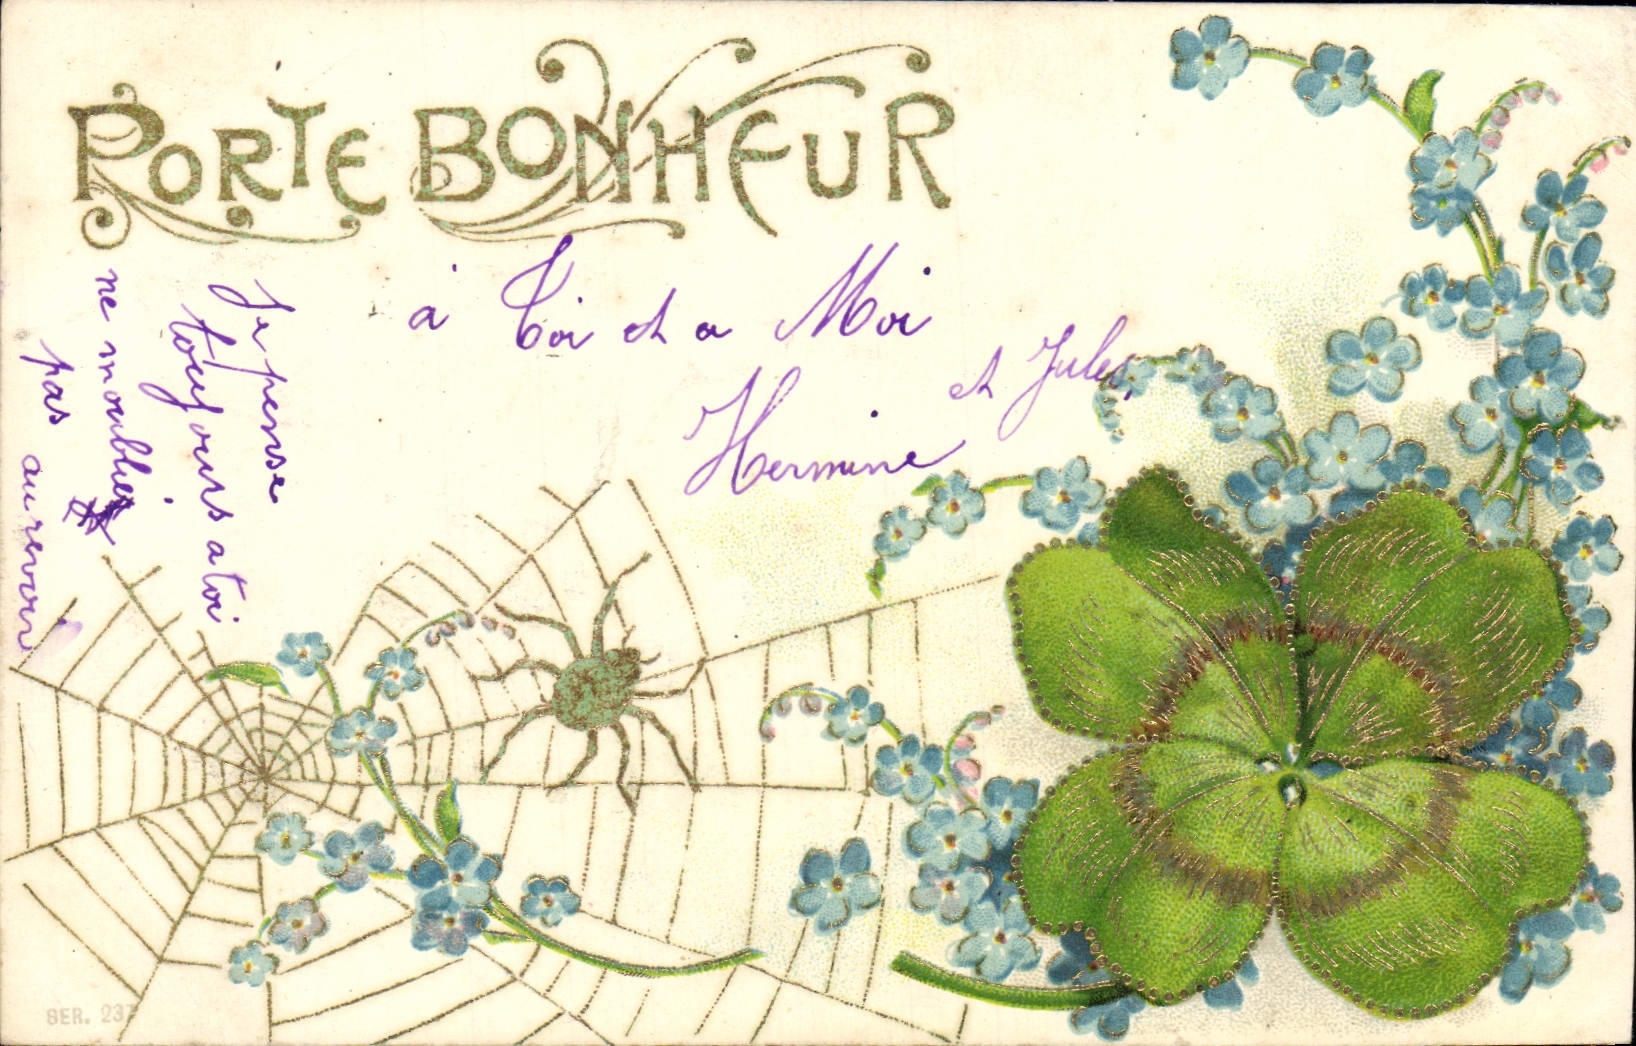 PORTE BONHEUR
à Toi et a Moi
et Jules
Hermine
Je pense
toujours a toi
ne moublie
pas
au revoir
SER. 237